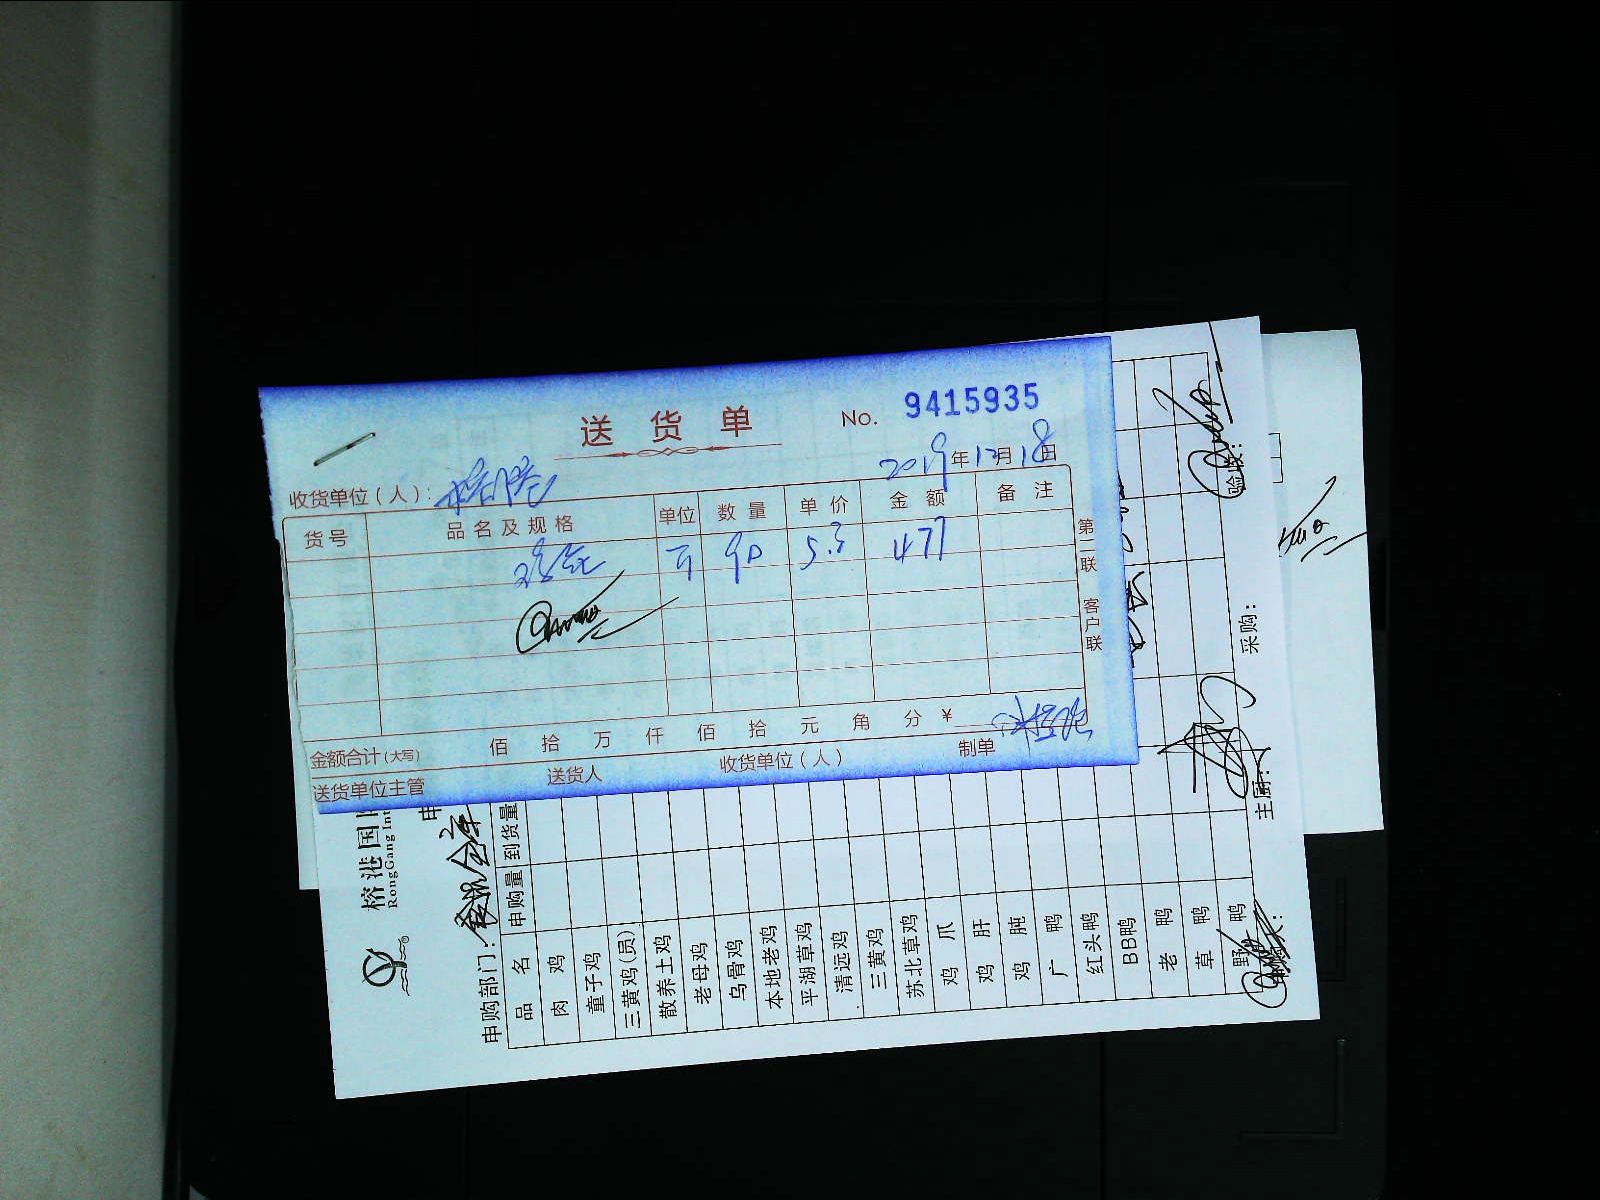 送货单 No. 9415935
2019年12月18日
收货单位（人）：榕港
货号 品名及规格 单位 数量 单价 金额 备注
鸡蛋 斤 90 5.3 477
第二联 客户联
金额合计(大写) 佰 拾 万 仟 佰 拾 元 角 分 ¥
送货单位主管 送货人 收货单位（人） 制单
榕港国
RongGang Int
申
申购部门：
品名 申购量 到货量
肉鸡
童子鸡
三黄鸡(员)
散养土鸡
老母鸡
乌骨鸡
本地老鸡
平湖草鸡
清远鸡
三黄鸡
苏北草鸡
鸡爪
鸡肝
鸡肫
广鸭
红头鸭
BB鸭
老鸭
草鸭
野鸭
主厨：
采购：
验收：